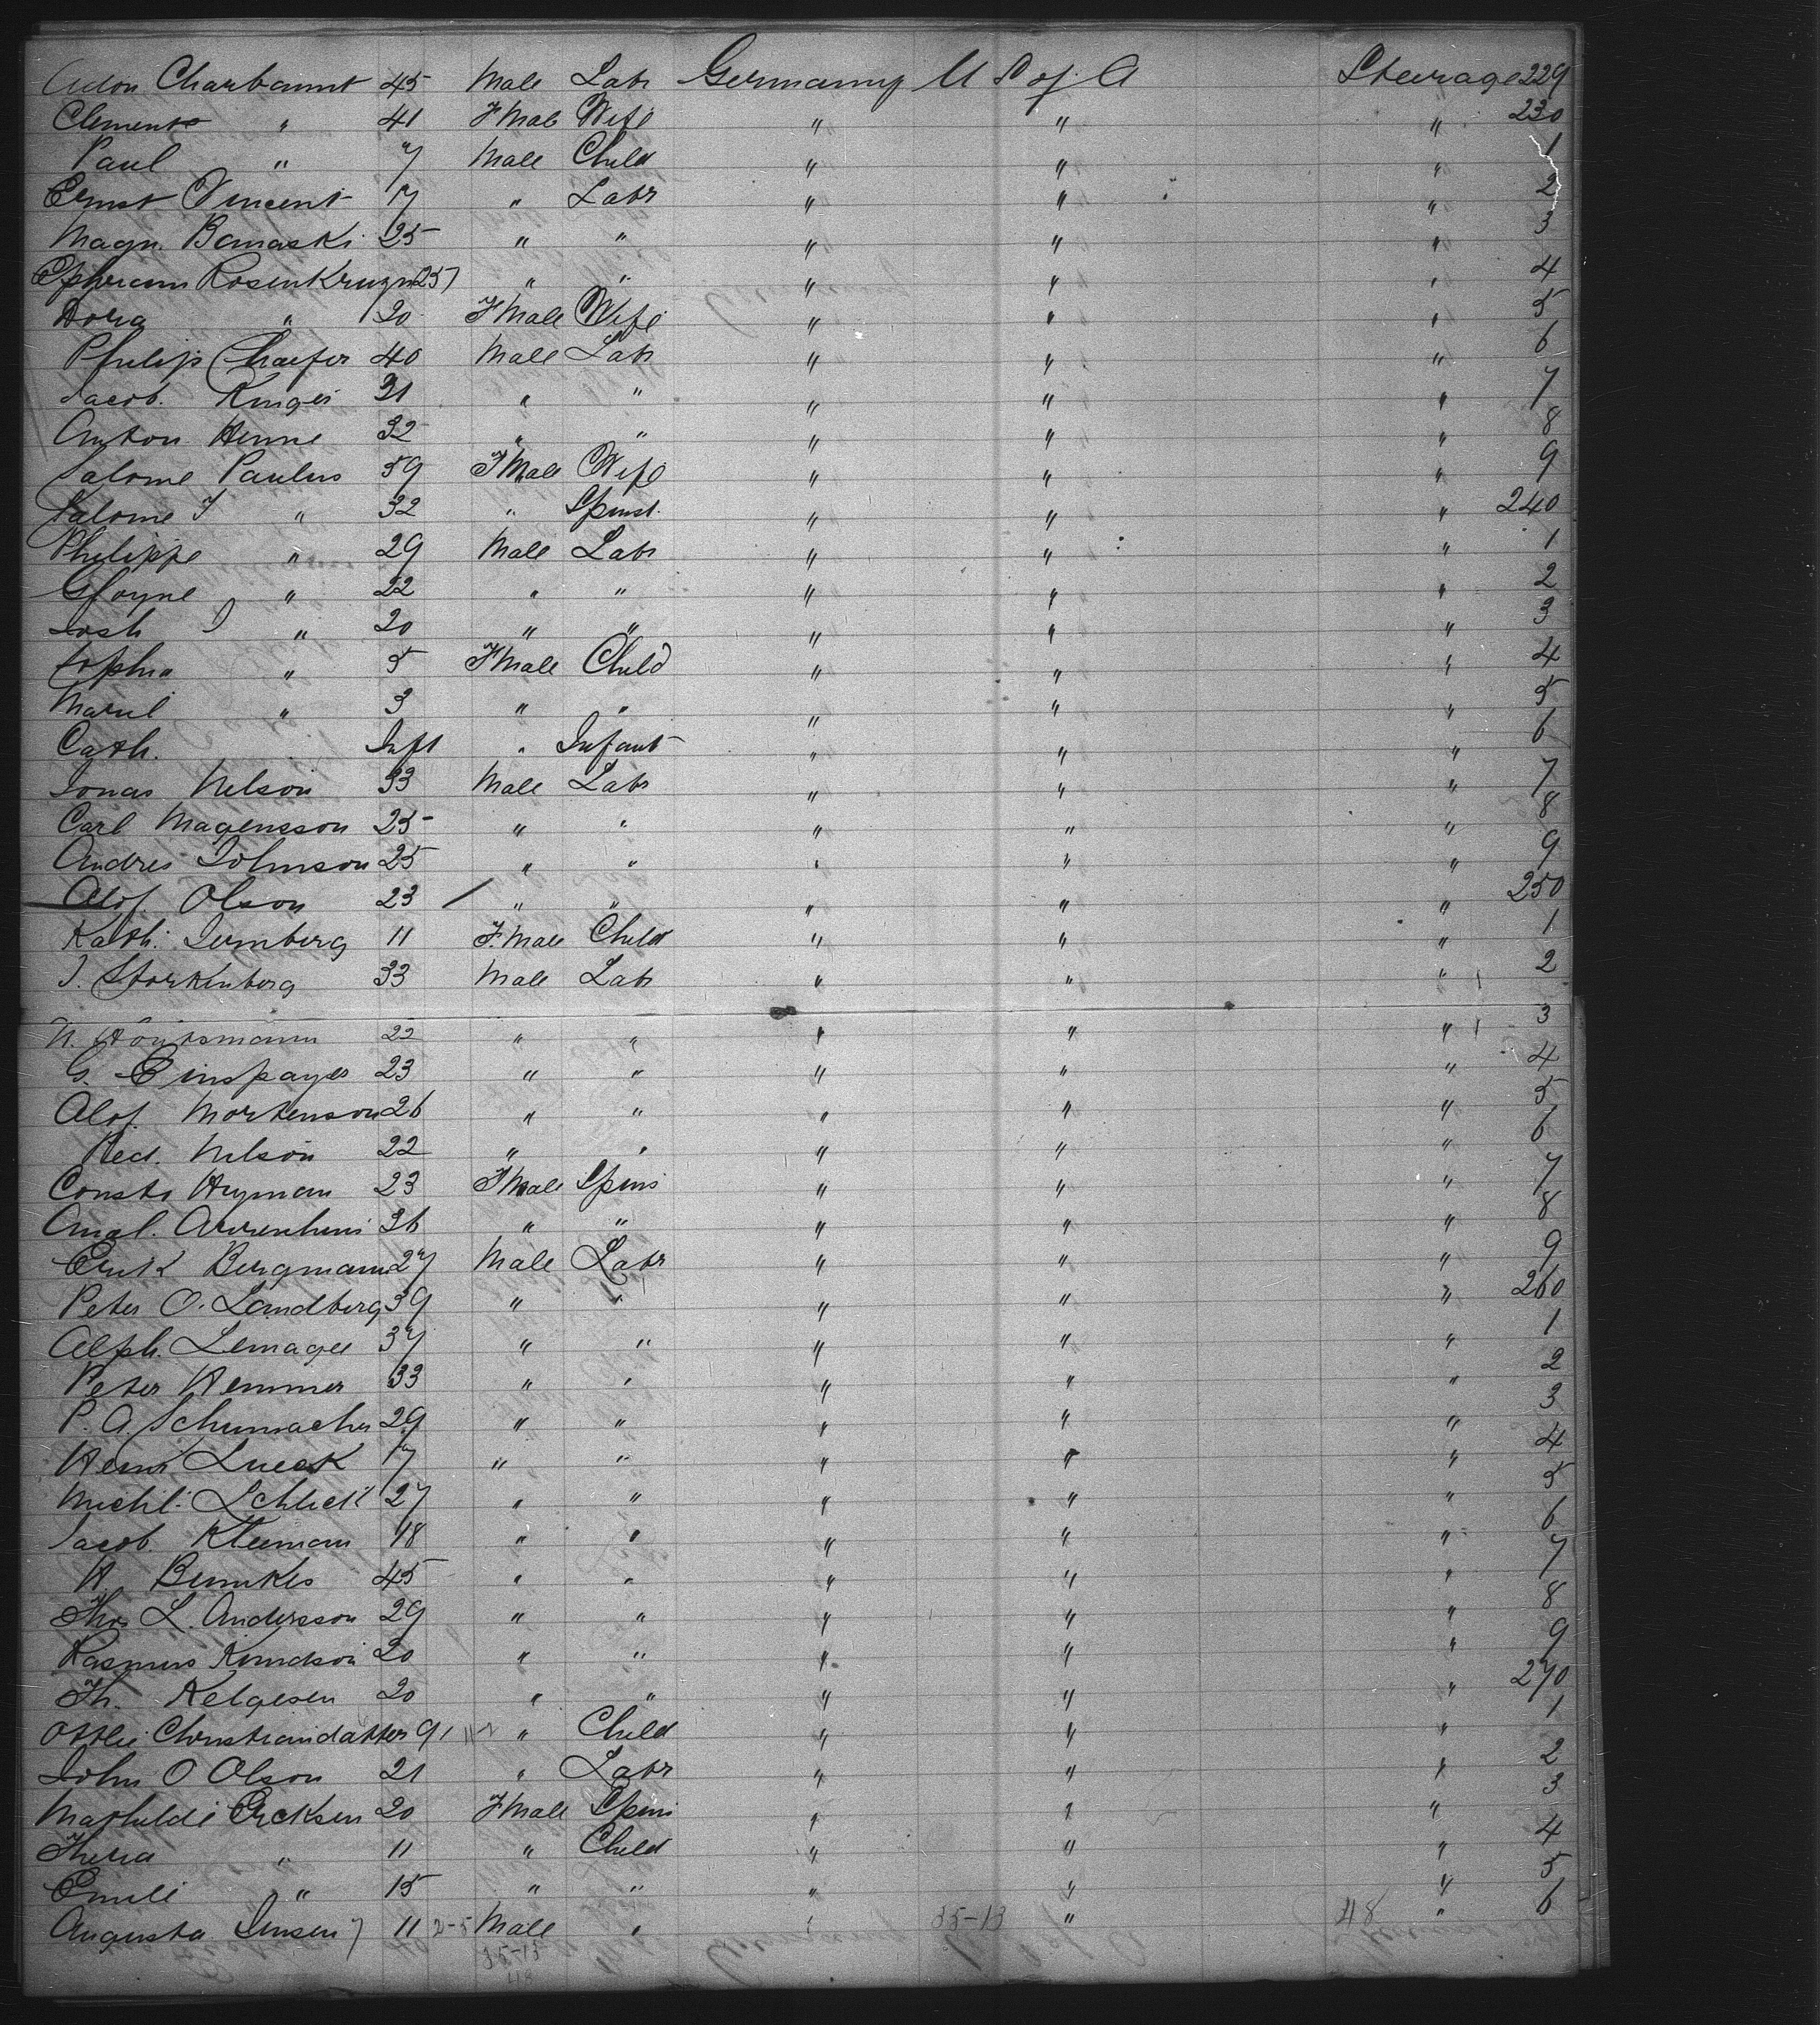 Adon Charbannt 45 Male Labr Germany U S of A Steerage 229
Clemente " 41 Fmale Wife " " " 230
Paul " 7 Male Child " " " 1
Ernst Vincent 17 " Labr " " " 2
Magn. Bomaski 25 " " " " " 3
Ephriam Rosenkrugn 25 " " " " " 4
Dora " 20 Fmale Wife " " " 5
Philip Chaefer 40 Male Labr " " " 6
Jacob. Kruger 31 " " " " " 7
Anton Henne 32 " " " " " 8
Salome Paulus 59 Fmale Wife " " " 9
Salome J " 32 " Spinst. " " " 240
Philippe " 29 Male Labr " " " 1
" 22 " " " " " 2
Josh J " 20 " " " " " 3
Sophia " 5 Fmale Child " " " 4
Maril " 3 " " " " " 5
Cath. Inft " Infant " " " 6
Jonas Nelson 33 Male Labr " " " 7
Carl Magensson 25 " " " " " 8
Andres Johnson 25 " " " " " 9
Alof. Olson 23 " " " " " 250
Kath. Lernberg 11 F.male Child " " " 1
J. Storkenberg 33 Male Labr " " " 2
N. 22 " " " " " 3
G. Einspayer 23 " " " " " 4
Alof. Mortenson 26 " " " " " 5
Ned. Nelson 22 " " " " " 6
Consto Hyman 23 Fmale Spins " " " 7
Amal. Arrenheni 26 " " " " " 8
Erik Bergmann 27 Male Labr " " " 9
Peter O. Landberg 39 " " " " " 260
Alph. Lemagee 37 " " " " " 1
Peter Hemmer 33 " " " " " 2
P. A. Schumacher 29 " " " " " 3
Henri Lueck 17 " " " " " 4
Michl. Schlick 27 " " " " " 5
Jacob. Kleeman 18 " " " " " 6
H Bemkes 45 " " " " " 7
Thos L. Andersson 29 " " " " " 8
Rasmus Knudson 20 " " " " " 9
Th. Helgesen 20 " " " " " 270
Ottlie Christiandatter 9 " Child " " " 1
John O Olson 21 " Labr " " " 2
Mathilde Ericksen 20 Fmale Spins " " " 3
Thera " 11 " Child " " " 4
Emili " 15 " " " " " 5
Augusta Jensen 11 2-5 Male " " 35-13 " 48 " 6
35-13
48